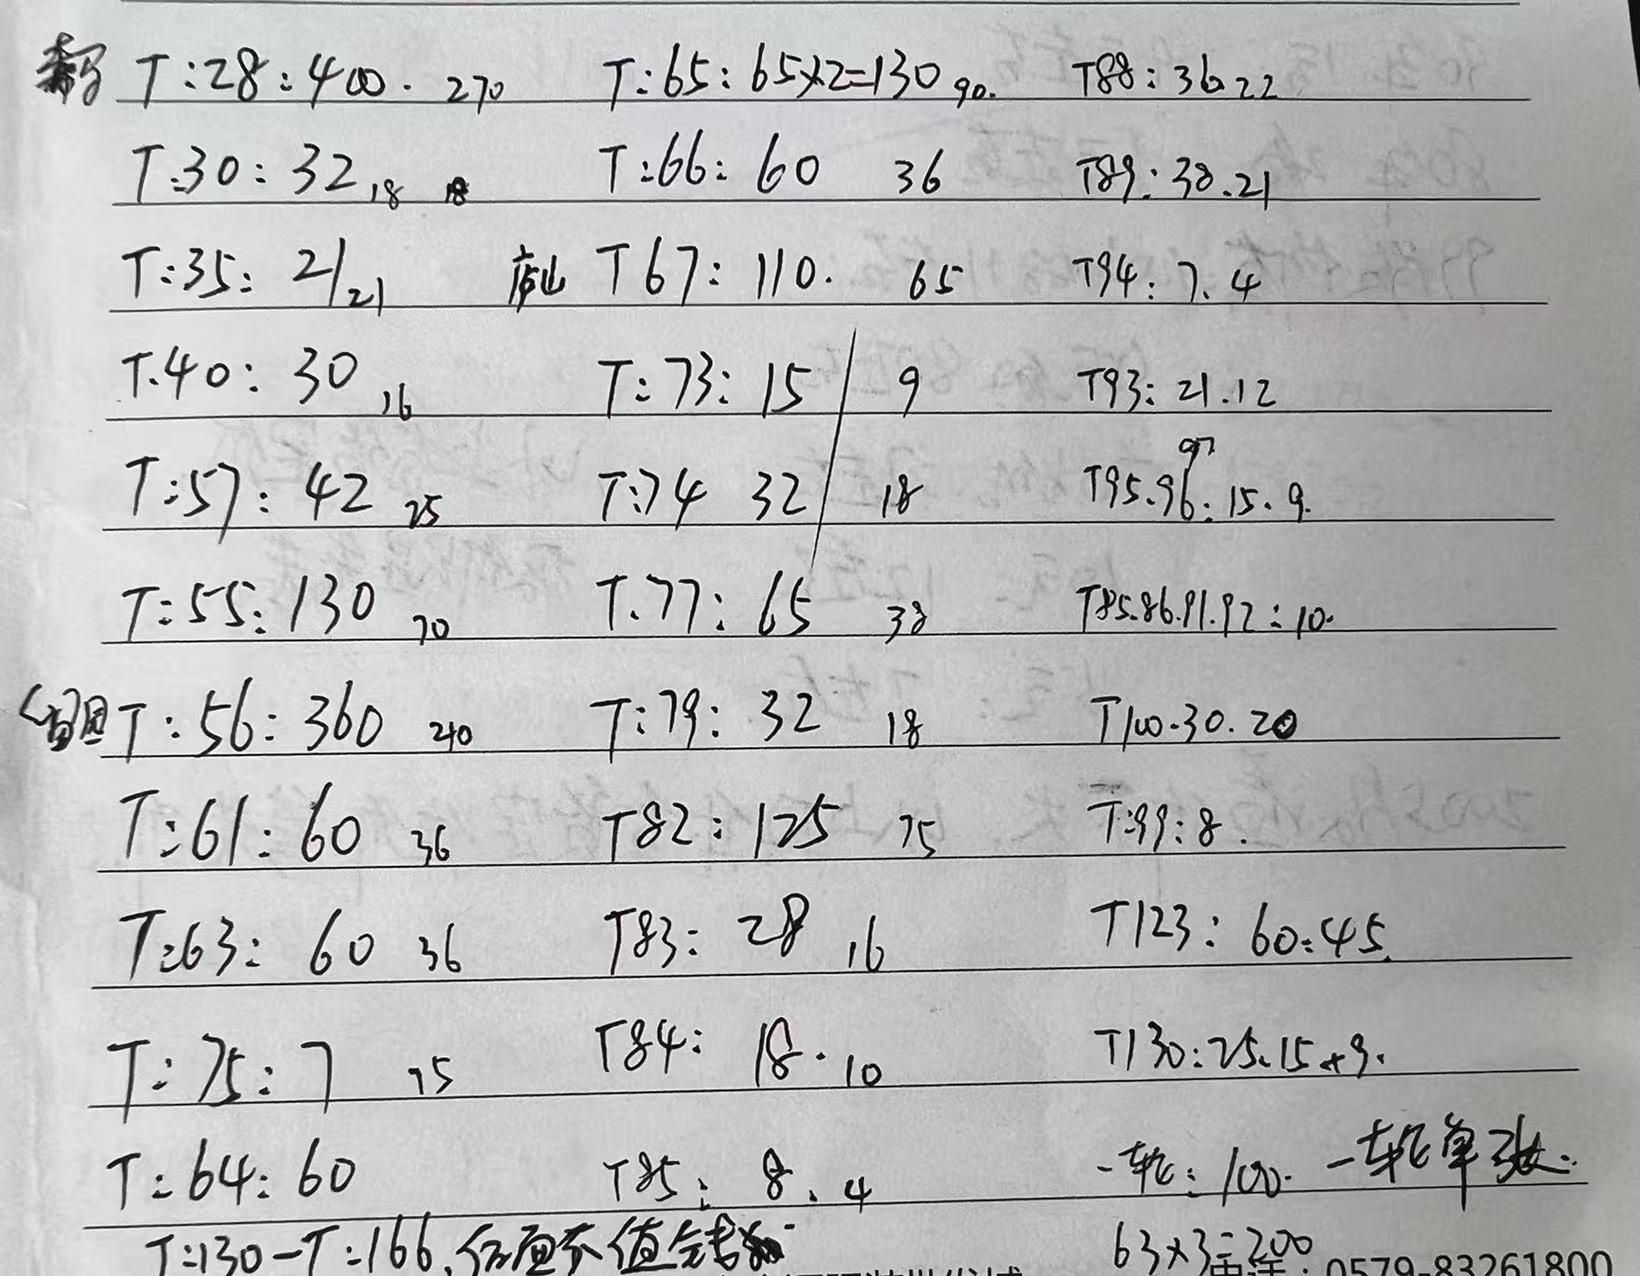 T:28:400. 270
T:30:32 18 18
T:35:21/21
T.40:30 16
T:57:42 25
T:55:130 70
T:56:360 240
T:61:60 36
T:63:60 36
T:75:7 75
T:64:60
T:130-T:166,后面不值钱
T:65:65×2=130 90.
T:66:60 36
庐山 T67:110. 65
T:73:15/9
T:74 32/18
T.77:65 38
T:79:32 18
T82:125 75
T83:28 16
T84:18.10
T85:8.4
T88:36.22
T89:38.21
T94:7.4
T93:21.12
97
T95.96:15.9.
T85.86.91.92:10.
T100.30.20
T:99:8.
T123:60:45.
T130:25.15+9.
一轮:100. 一轮单张.
63×3=200
0579-83261800